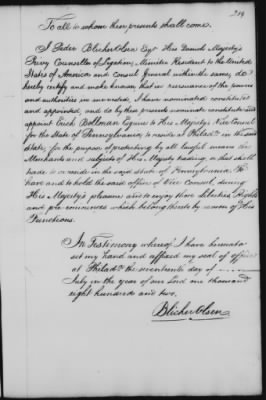 219
To all to whom these presents shall come.
I Peder Blicher Olsen Esqr His Danish Majesty's
Privy Counsellor of Legation, Minister Resident to the United
States of America and Consul General within the same, do
hereby certify and make known, that in pursuance of the powers
and authorities me invested, I have nominated constituted
and appointed, and do by these presents nominate constitute and
appoint Erich Bollman Esquire to His Majesty's Vice Consul
for the State of Pennsylvania, to reside at Philada in the said
State; for the purpose of protecting by all lawful means the
Merchants and subjects of His Majesty trading, or that shall
trade to or reside in the said State of Pennsylvania. To
have and to hold the said office of Vice Consul, during
His Majesty's pleasure and to enjoy the Liberties, Rights
and pre eminences which belong thereto by reason of His
Functions.
In Testimony whereof I have hereunto
set my hand and affixed my seal of office
at Philada the seventeenth day of
July in the year of our Lord one thousand
eight hundred and two.
Blicher Olsen